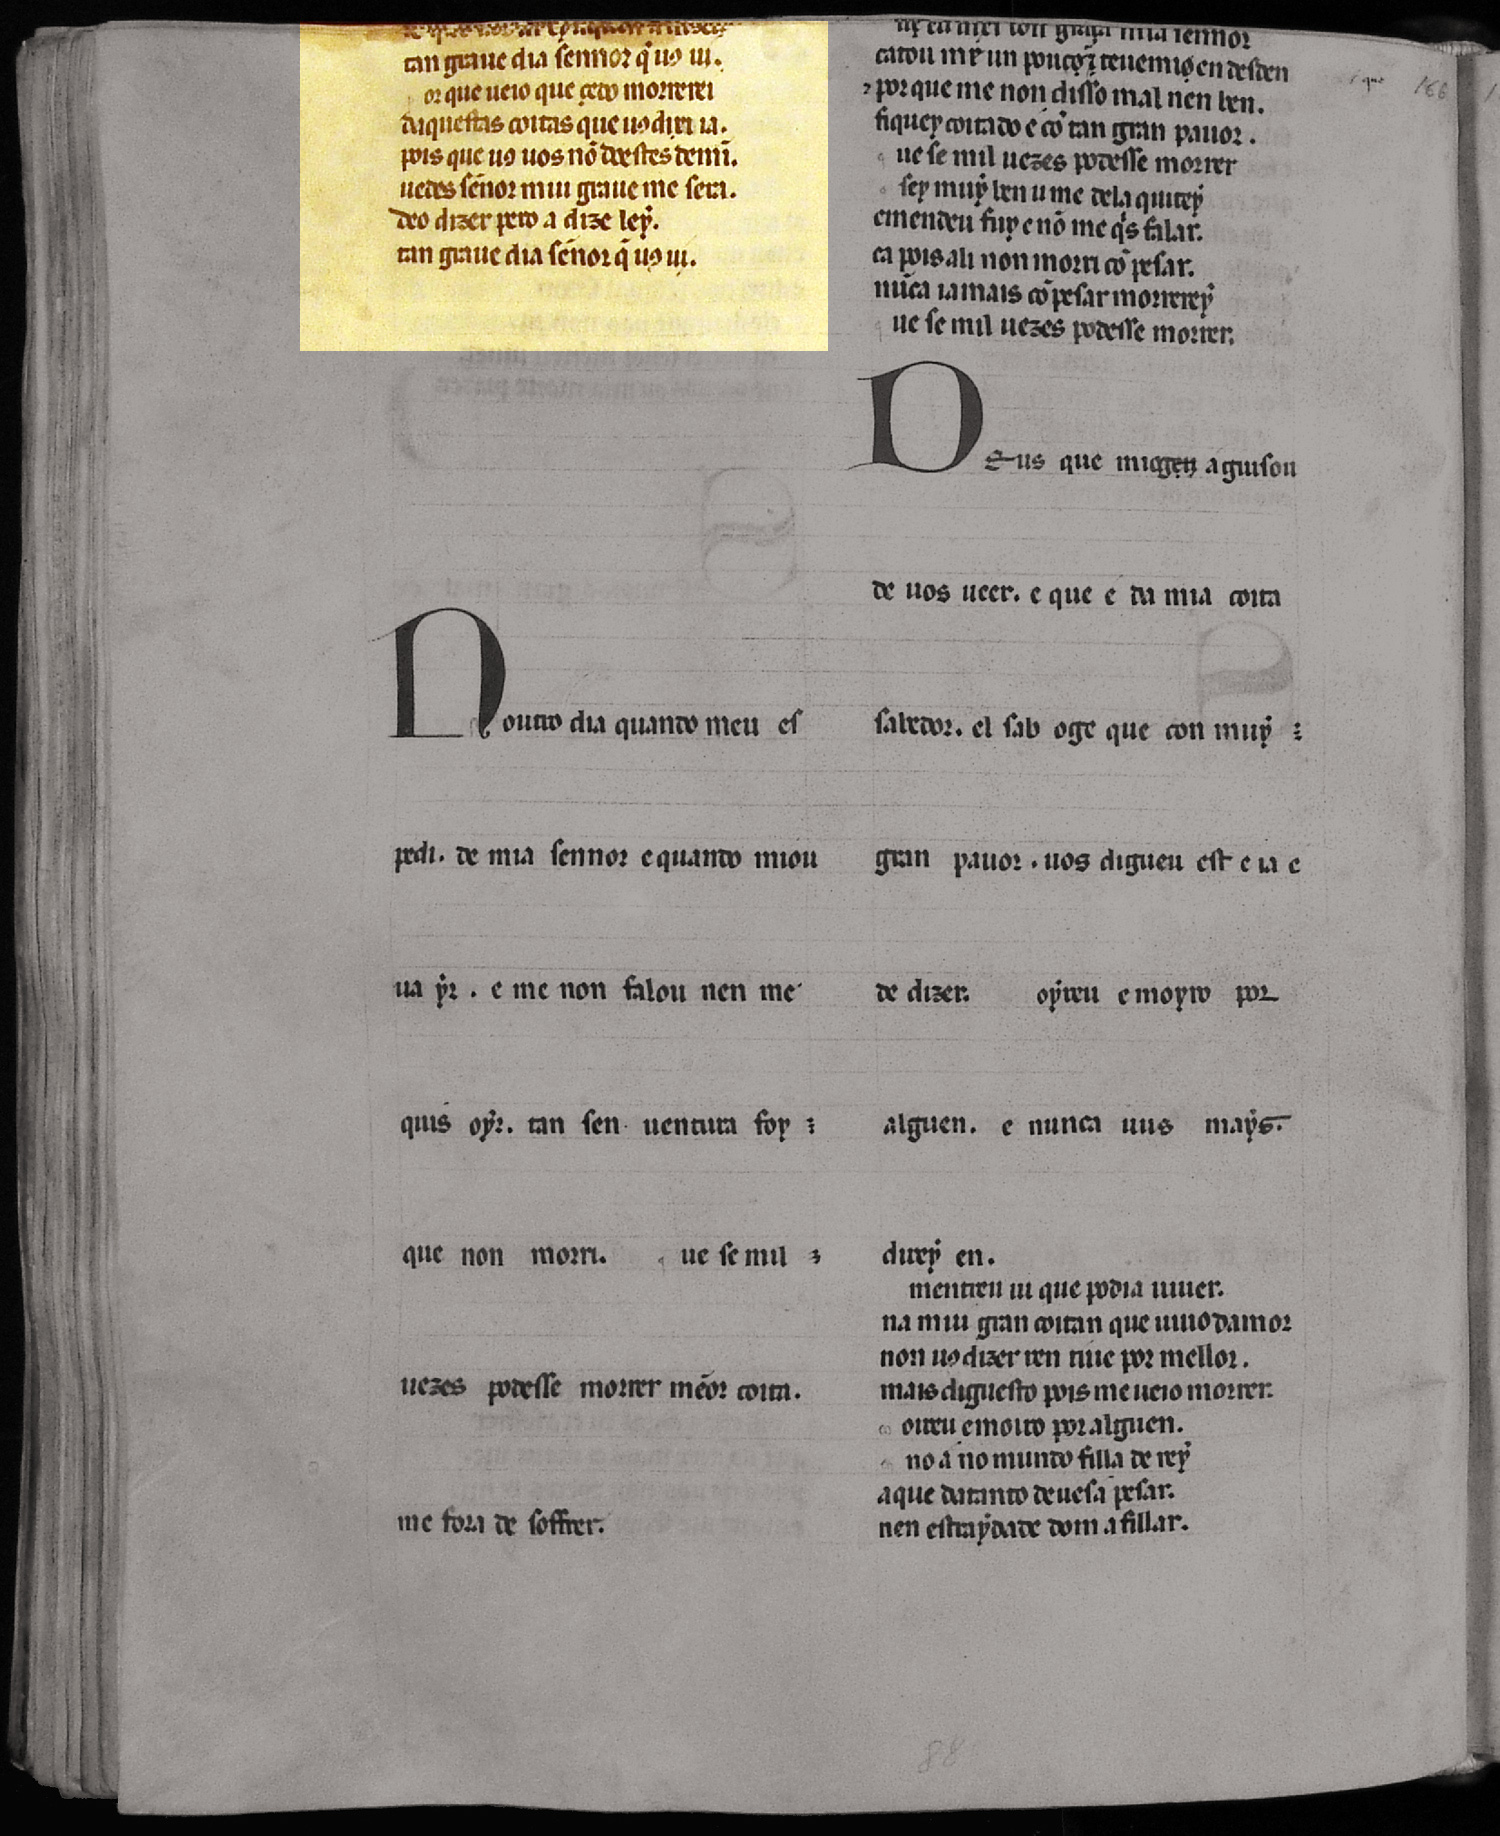 tan graue dia sennor q̄ uꝯ ui.
or que ueio que çedo morrerei
daquestas coitas que uꝯ dixi ia.
pois que uꝯ uos nō doestes de mī.
uedes sēnor mui graue me sera.
deo dizer pero a dizelo ey̍.
tan graue dia sēnor q̄ uꝯ ui.
outro dia quando meu es
pedi. de mia sennor e quando miou
ua ẏr . e me non falou nen me
quis oẏr. tan sen uentura foy
que non morri. ue se mil
uezes podesse morrer mēor coita.
me fora de soffrer.
ux eu mei con graça mia sennor
catou mx un pouco ⁊ teuemiꝯ en desden
⁊ por que me non disso mal nen ben.
fiquey coitado e cō tan gran pauor .
ue se mil uezes podesse morrer
sey muẏ ben u me dela quitey
emendeu fuy e nō me q̍s falar.
ca pois ali non morri cō pesar.
nūca iamais cō pesar morrereẏ
ue se mil uezes podesse morrer.
Deus que mi ogen aguisou
de uos ueer. e que e da mia coita
sabedor. el sab oge que con muẏ
gran pauor . uos digueu est e ia e
de dizer. oẏreu e moyro por
alguen. e nunca uus maẏs.
direẏ en.
mentreu ui que podia uiuer.
na mui gran coitan que uiuo damor
non uꝯ dizer ren tiue por mellor.
mais diguesto pois me ueio morrer.
oireu e moiro por alguen.
no a no mundo filla de reẏ
a que datanto deuesa pesar.
nen estraẏdade dom a fillar.
88
166